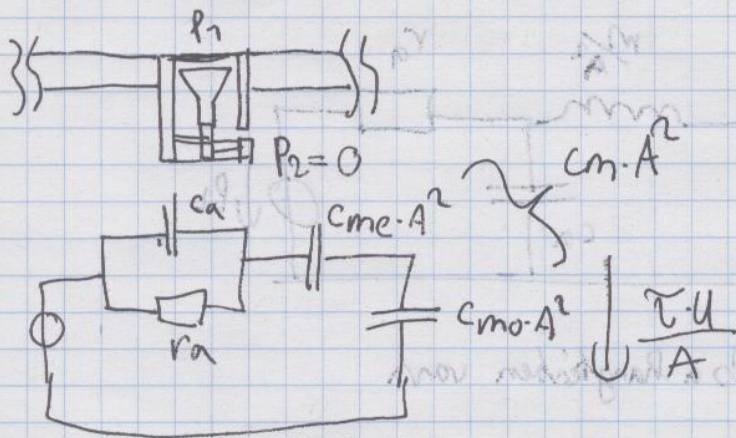 P₁
P₂ = 0
Cm·A²
Ca
Cme·A²
ra
Cmo·A²
τ·U
A